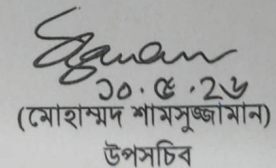 ১০.৫.২৬
(মোহাম্মদ শামসুজ্জামান)
উপসচিব